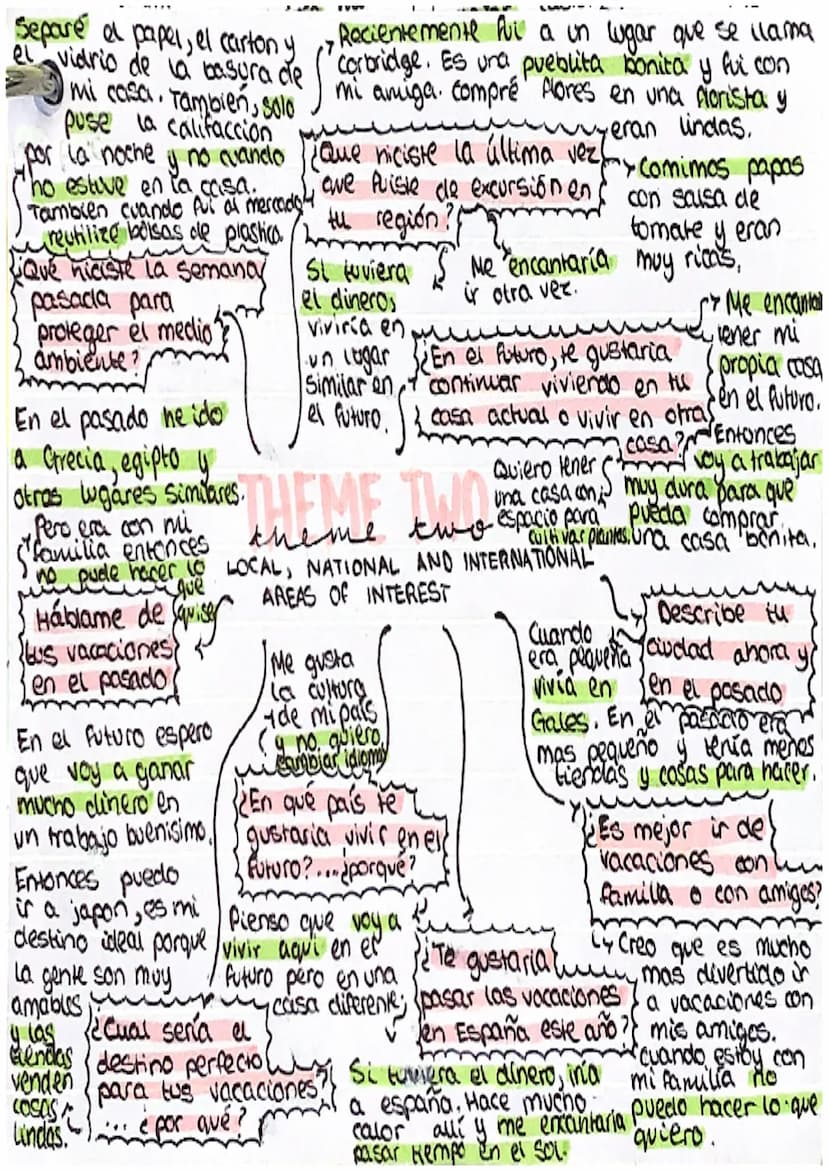 Separé el papel, el carton y
el vidrio de la basura de
mi casa. También, solo
puse la califacción
por la noche y no cuando
no estuve en la casa.
También cuando fui al mercado
reutilizé bolsas de plastica.
¿Qué hiciste la semana
pasada para
proteger el medio
ambiente?
Recientemente fui a un lugar que se llama
corbridge. Es una pueblita bonita y fui con
mi amiga. Compré flores en una florista y
eran lindas.
¿Que hiciste la última vez
que fuiste de excursión en
tu región?
Comimos papas
con salsa de
tomate y eran
muy ricas.
Me encantaría
ir otra vez.
Si tuviera
el dinero,
viviría en
un lugar
similar en
el futuro.
¿En el futuro, te gustaria
continuar viviendo en tu
casa actual o vivir en otra
casa?
Me encantan
tener mi
propia casa
en el futuro.
Entonces
voy a trabajar
muy dura para que
pueda comprar
una casa bonita.
Quiero tener
una casa con
espacio para
cultivar plantas.
THEME TWO
theme two
LOCAL, NATIONAL AND INTERNATIONAL
AREAS OF INTEREST
En el pasado he ido
a Grecia, egipto y
otros lugares similares.
Pero era con mi
familia entonces
no pude hacer lo
que
quise
Háblame de
tus vacaciones
en el pasado
Describe tu
ciudad ahora y
en el pasado
Cuando
era pequeña
vivía en
Gales. En el pasado era
mas pequeño y tenía menos
tiendas y cosas para hacer.
Me gusta
la cultura
de mi país
y no quiero
cambiar idioma
¿En qué país te
gustaria vivir en el
futuro?...¿porqué?
Pienso que voy a
vivir aqui en el
futuro pero en una
casa diferente.
En el futuro espero
que voy a ganar
mucho dinero en
un trabajo buenisimo.
Entonces puedo
ir a japon, es mi
destino ideal porque
la gente son muy
amables
y las
tiendas
venden
cosas
lindas.
¿Cual sería el
destino perfecto
para tus vacaciones?
... ¿por qué?
¿Te gustaría
pasar las vacaciones
en España este año?
Si tuviera el dinero, iria
a españa. Hace mucho
calor allí y me encantaria
pasar tiempo en el sol.
¿Es mejor ir de
vacaciones con
familia o con amigos?
Creo que es mucho
mas divertido ir
a vacaciones con
mis amigos.
cuando estoy con
mi familia no
puedo hacer lo que
quiero.